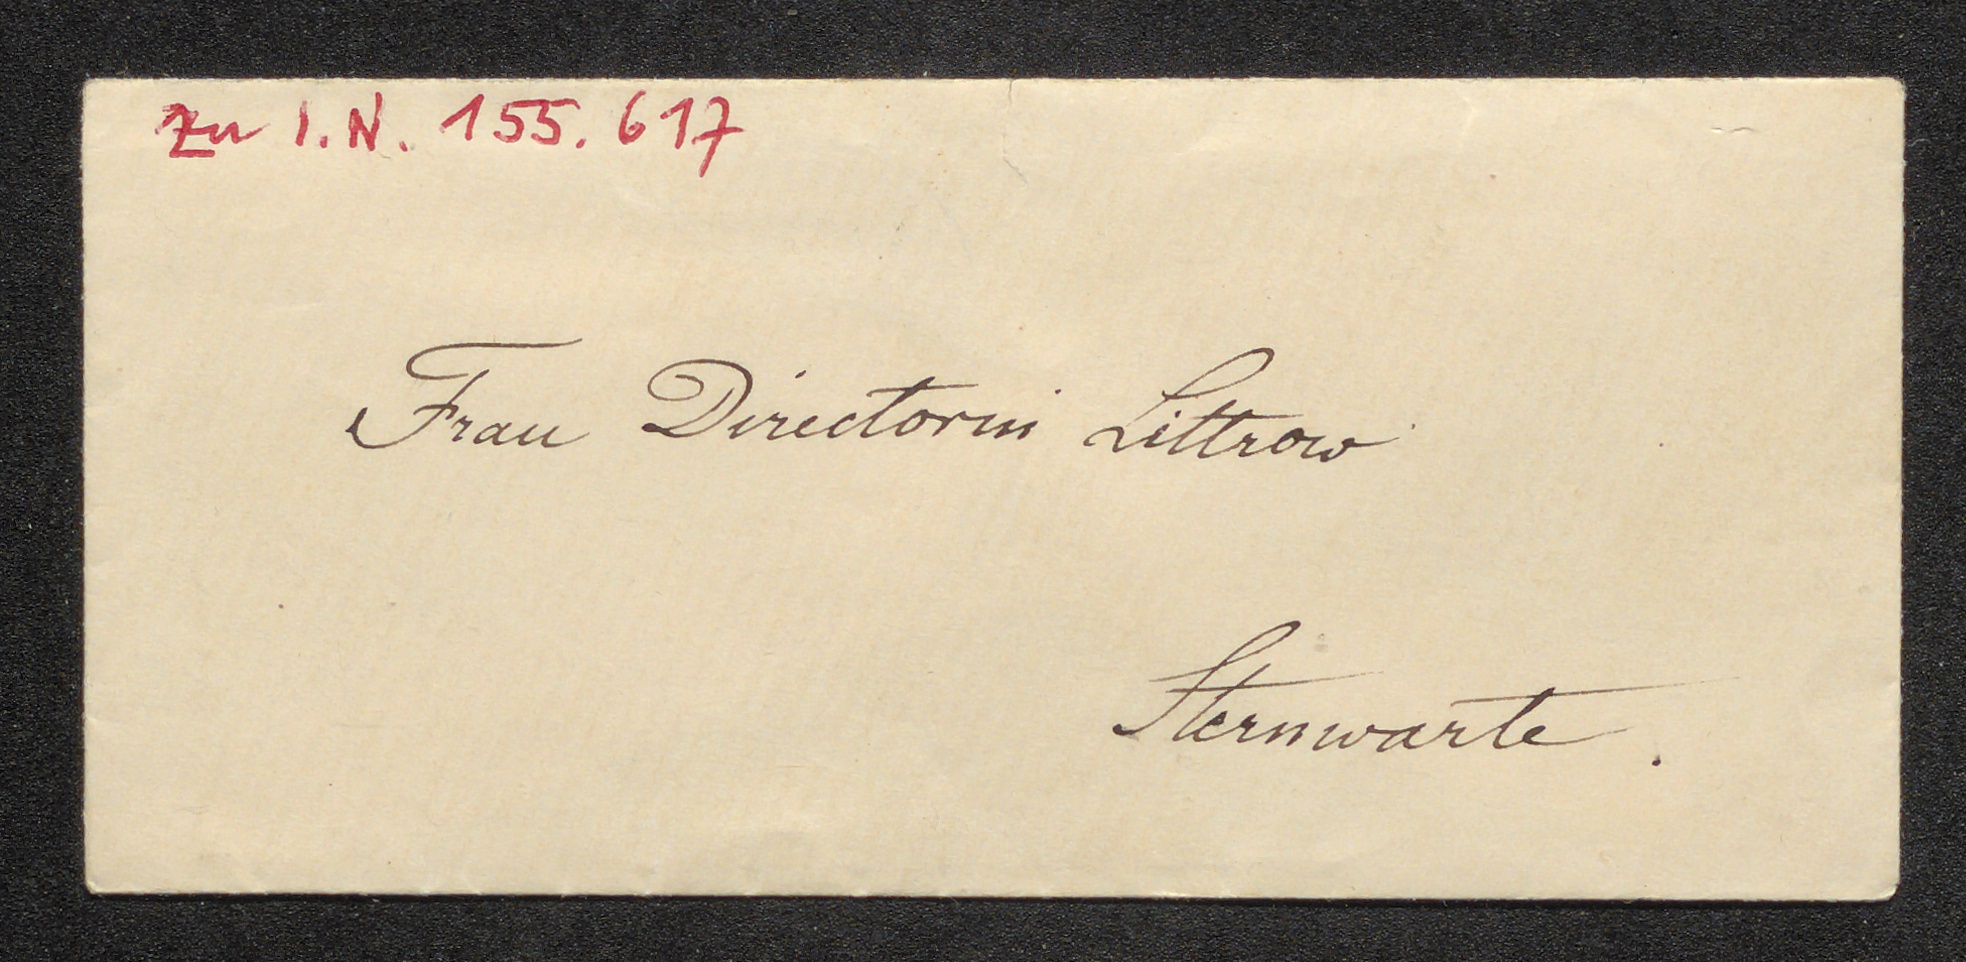 zu I.N. 155.617
Frau Directorin Littrow
Sternwarte.